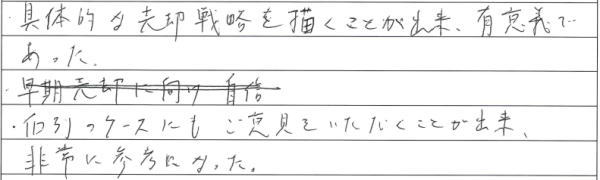 ・具体的な売却戦略を描くことが出来、有意義で
あった。
・早期売却に向け自信
・個別のケースにもご意見をいただくことが出来、
非常に参考になった。